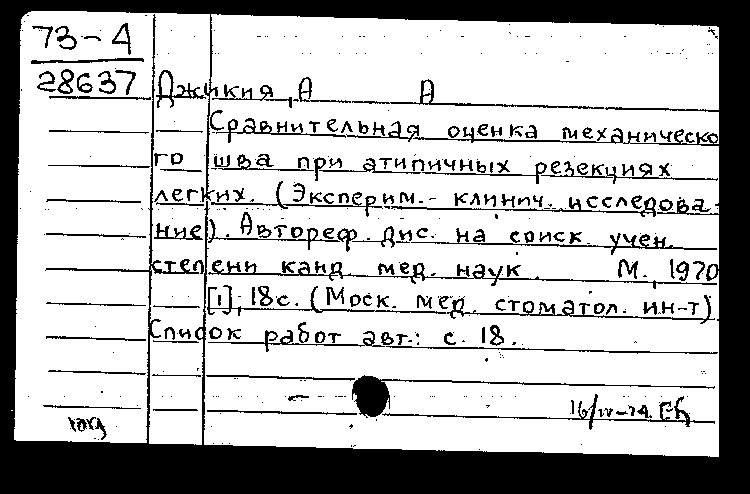 73-4
28637
Джикия, А А
Сравнительная оценка механическо
го шва при атипичных резекциях
легких. (Эксперим.- клинич. исследова-
ние). Автореф. дис. на соиск учен.
степени канд. мед. наук. М., 1970
[1], 18 с. (Моск. мед. стоматол. ин-т)
Список работ авт.: с. 18.
16/IV-74.